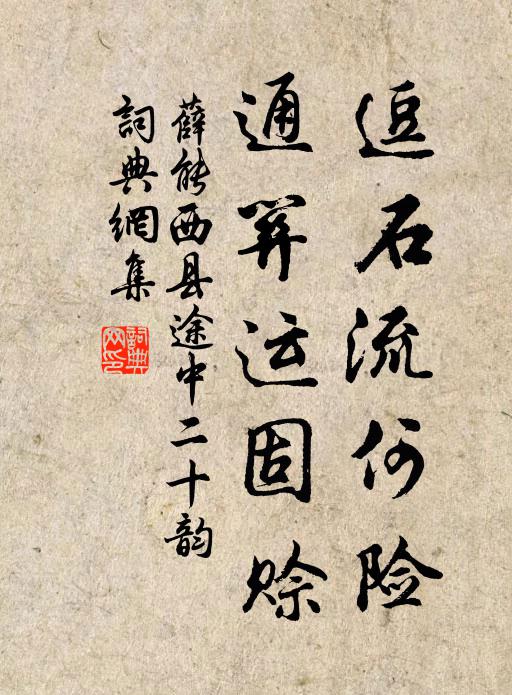 逗石流何险
通笄运固赊
薛能西县途中二十韵
詞典網集
詞典网印